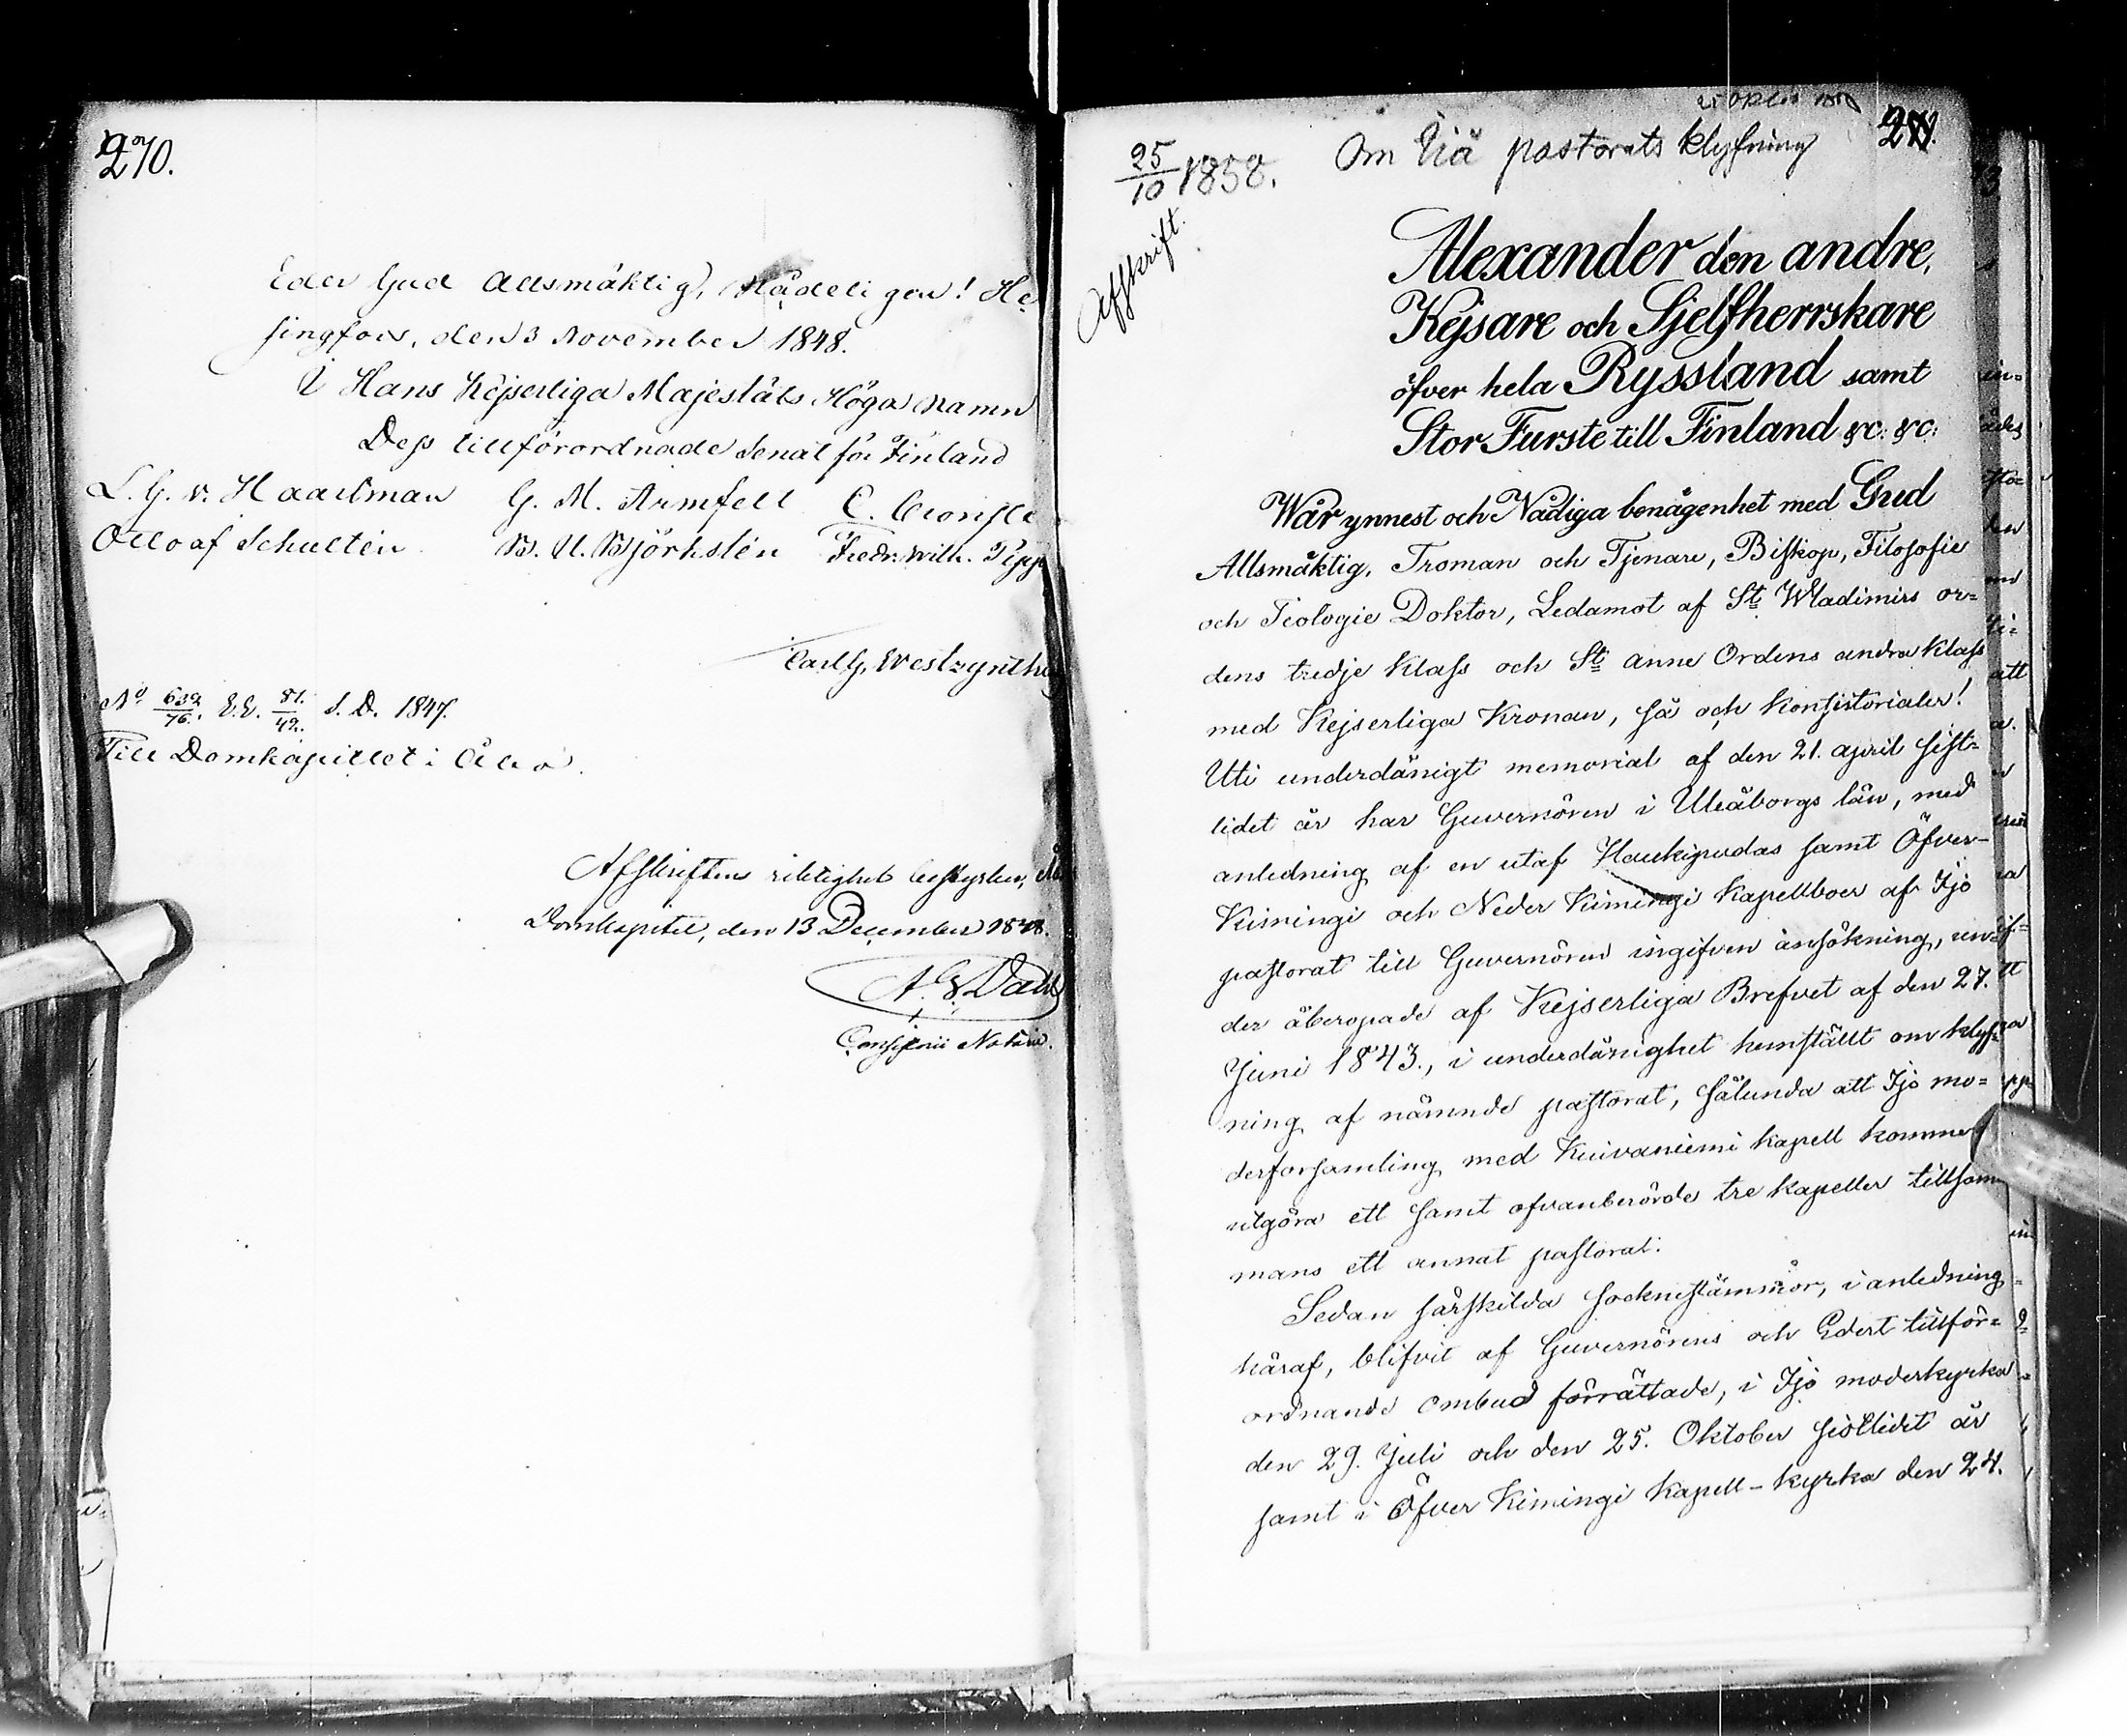 270.
Eder Gud Allsmäktig, Nådeligen! Hel
singfors, den 3 November 1848.
I Hans Kejserliga Majestäts Höga Namn
Dess tillförordnade Senat för Finland
L. G. v. Haartman G. M. Armfelt C. Cronste
Otto af Schultén B. U. Björkstén Fredr. Wilh. Pipp
Carl G. Westzynthi
No 639/76. E.E. 81./42. S. D. 1847.
Till Domkapitlet i Åbo.
Afskriftens riktighet bestyrker, Åbo
Domkapitel, den 13 December 1848.
A. G. Dahl
Consistorii Notarie.
25 Okt 1858
25/10 1858. Om Iiå pastorats klyfning 271.
Afskrift.
Alexander den andre,
Kejsare och Sjelfherrskare
öfver hela Ryssland samt
Stor Furste till Finland &c: &c:
Wår ynnest och Nådiga benägenhet med Gud
Allsmäktig, Troman och Tjenare, Biskop, Filosofie
och Teologie Doktor, Ledamot af St Wladimirs or=
dens tredje Klass och St Anne Ordens andra Klass
med Kejserliga Kronan, så och Konsistorialer!
Uti underdånigt memorial af den 21. april sist=
lidet år har Guvernören i Uleåborgs län, med
anledning af en utaf Haukipudas samt Öfver-
Kiimingi och Neder Kiimingi Kapellboer af Ijo
pastorat till Guvernören ingifven ansökning, un=
der åberopade af Kejserliga Brefvet af den 27.
Juni 1843., i underdånighet hemställt om klyf=
ning af nämnde pastorat, sålunda att Ijo mo=
derförsamling med Kuivaniemi kapell komme
utgöra ett samt ofvanberörde tre kapeller tillsam
mans ett annat pastorat.
Sedan särskilda sockneståmmor, i anledning
häraf, blifvit af Guvernörens och Edert tillför=
ordnande ombud förrättade, i Ijo moderkyrka
den 29. Juli och den 25. Oktober sistlidet år
samt i Öfver Kiimingi Kapell-kyrka den 24.